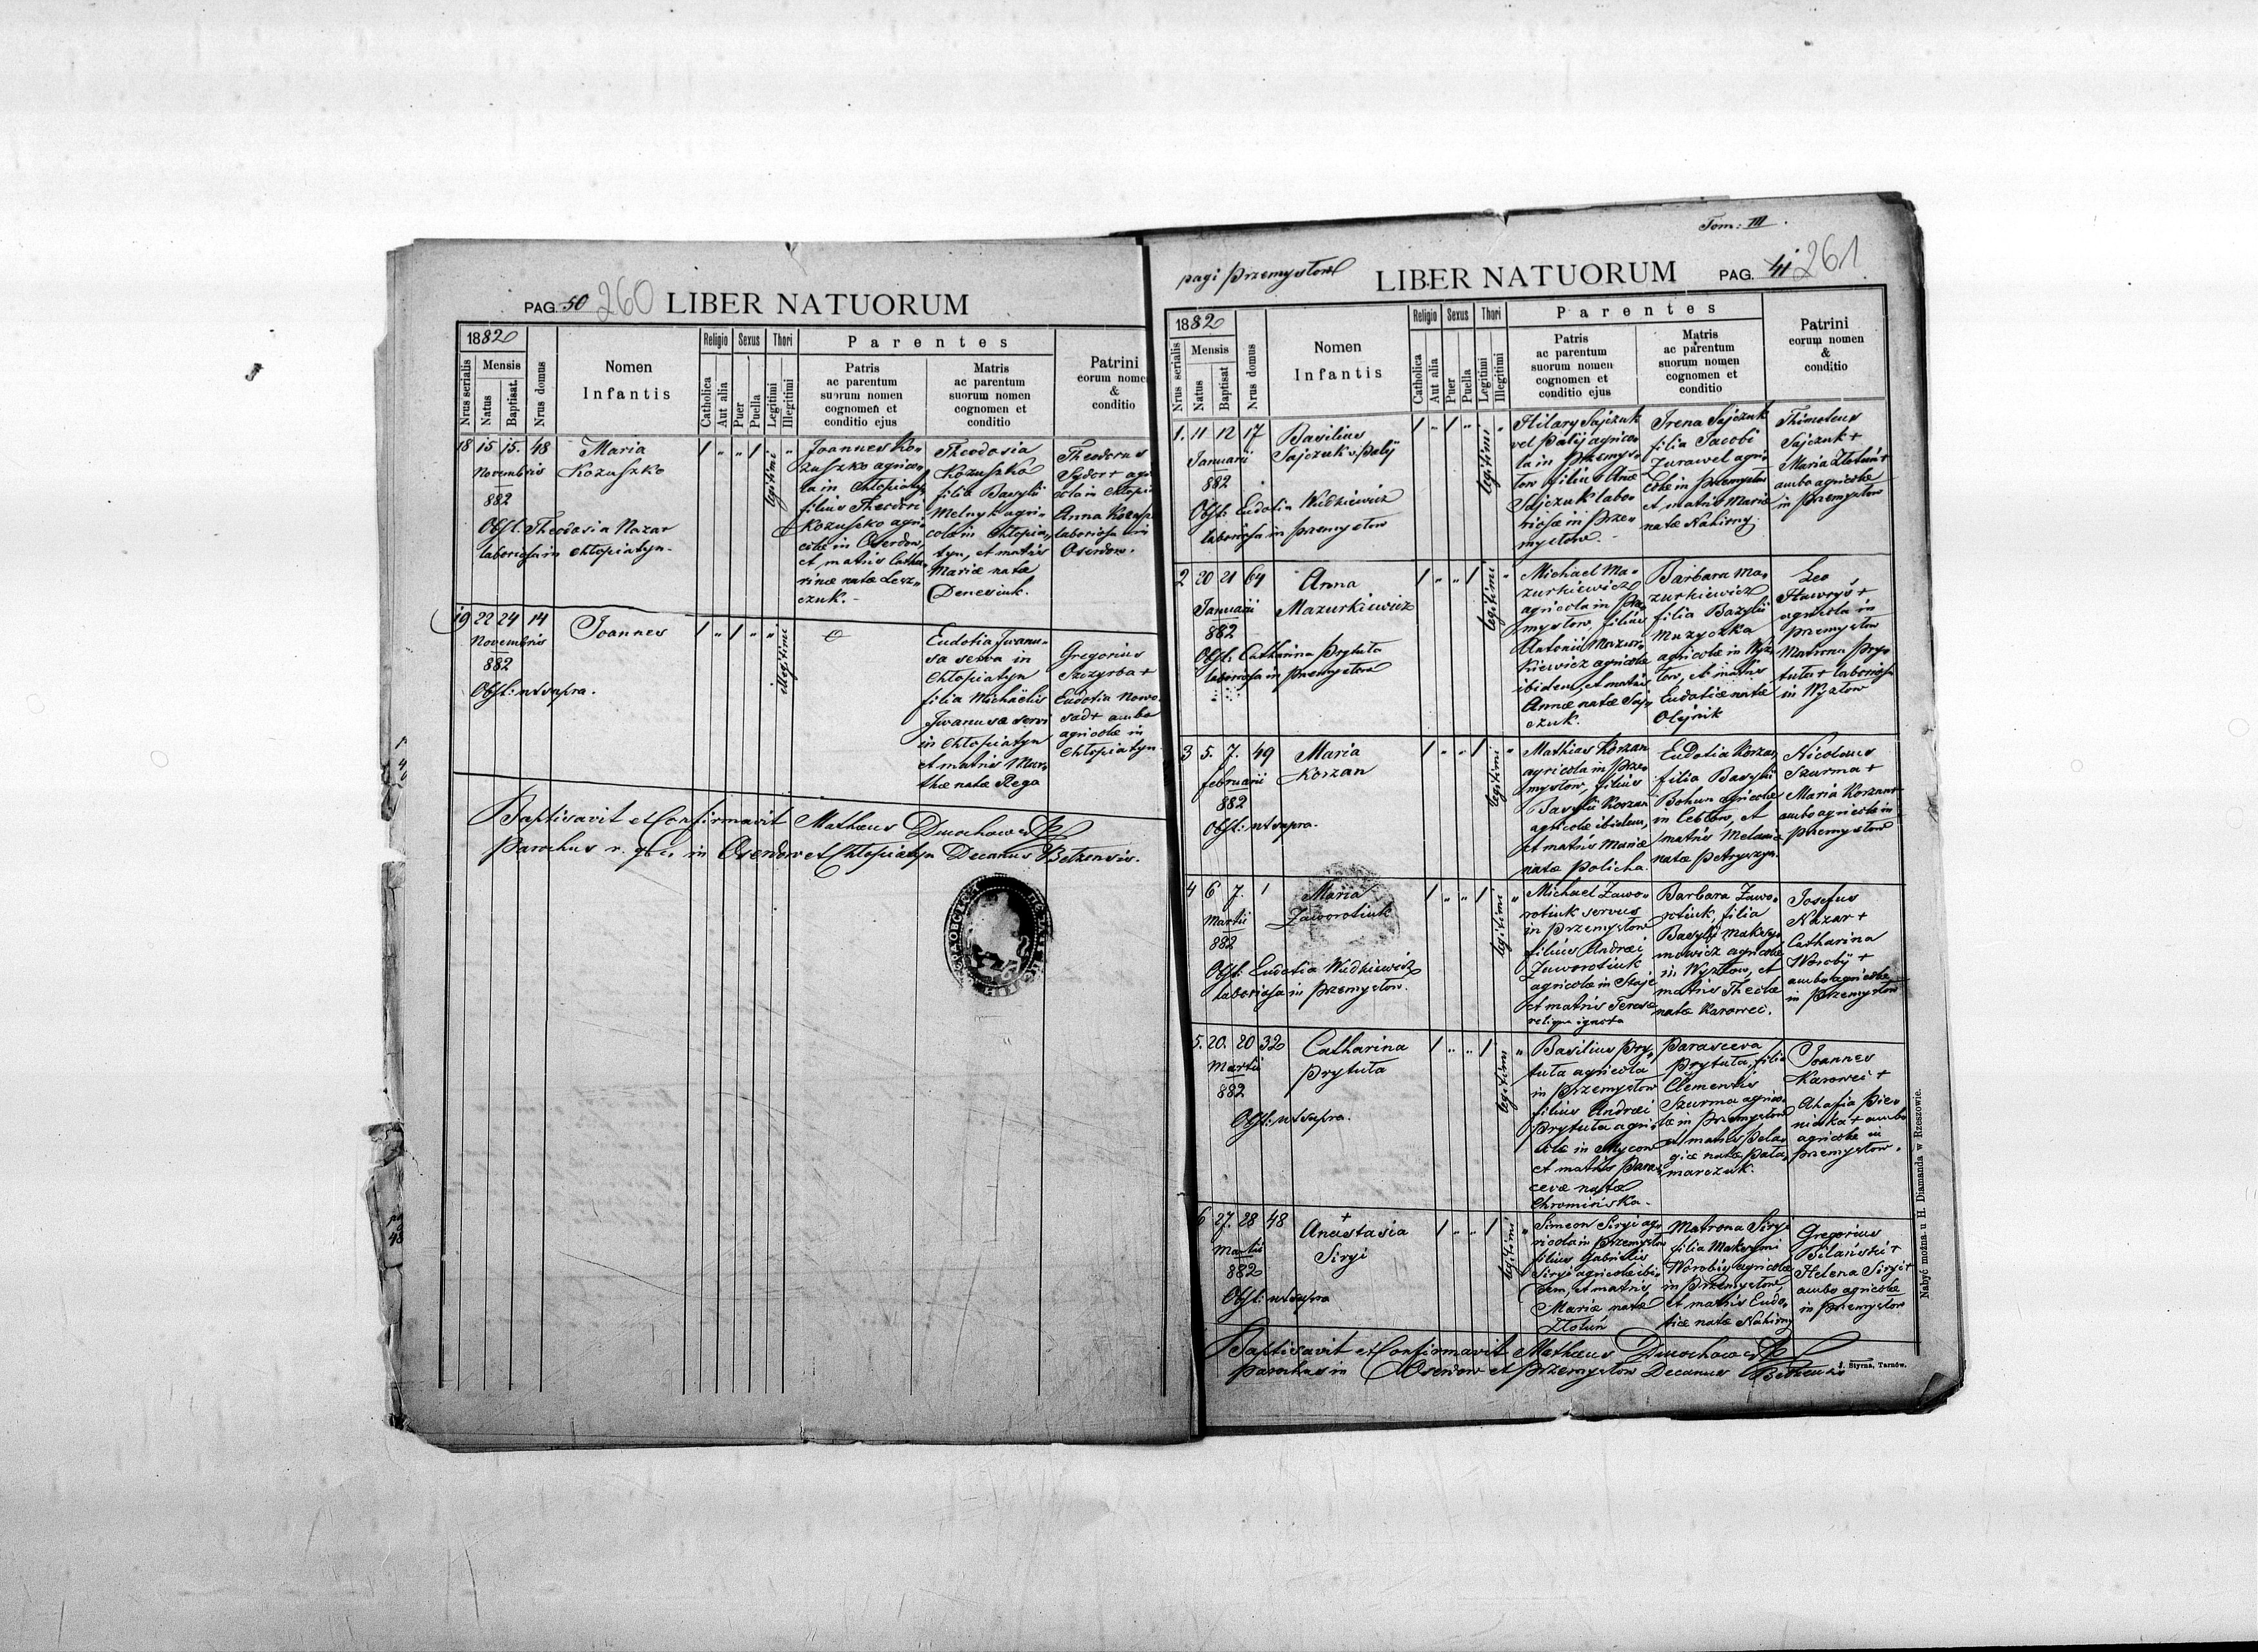 PAG. 50 260 LIBER NATUORUM
1882
Nrus serialis
Mensis
Natus
Baptisat.
Nrus domus
Nomen
Infantis
Religio
Catholica
Aut alia
Sexus
Puer
Puella
Thori
Legitimi
Illegitimi
Parentes
Patris
ac parentum
suorum nomen
cognomen et
conditio ejus
Matris
ac parentum
suorum nomen
cognomen et
conditio
Patrini
eorum nomen
&
conditio
18 15 15. 48
Novembris
882
Maria
Kozuszko
Obst. Theodosia Nazar
laboriosa in Chłopiatyn.
legitimi
Joannes Ko-
zuszko agrico-
la in Chłopiatyn
filius Theodori
Kozuszko agri-
colæ in Oserdow,
et matris Catha-
rinæ natæ Lesz-
czuk.
Theodosia
Kozuszko
filia Basylii
Melnyk agri-
colæ in Chłopia-
tyn, et matris
Mariæ natæ
Denesiuk.
Theodorus
Sydor + agri
cola in Chłopia
Anna Kozusz
laboriosa in
Oserdow.
19 22 24 14
Novembris
882
Joannes
Obst: ut supra.
illegitimi
Eudotia Jwanu-
sa serva in
Chłopiatyn
filia Michaëlis
Jwanusa servi
in Chłopiatyn
et matris Mar-
thæ natæ Rega
Gregorius
Szczyrba +
Eudotia Nowo
sad + ambo
agricolæ in
Chłopiatyn.
Baptisavit et Confirmavit Mathæus
Parochus r. gr. c. in Oserdow et Chłopiatyn Decanus Betzensis.
Tom: III.
pagi Przemysłow LIBER NATUORUM PAG. 41 261
1882
Nrus serialis
Mensis
Natus
Baptisat
Nrus domus
Nomen
Infantis
Religio
Catholica
Aut alia
Sexus
Puer
Puella
Thori
Legitimi
Illegitimi
Parentes
Patris
ac parentum
suorum nomen
cognomen et
conditio ejus
Matris
ac parentum
suorum nomen
cognomen et
conditio
Patrini
eorum nomen
&
conditio
1. 11 12 17
Januarii
882
Basilius
Sajczuk v. Palij
Obst. Eudotia Wudkiewicz
laboriosa in Przemysłow
legitimi
Hilary Sajczuk
vel Palij agrico-
la in Przemys-
łow filius Annæ
Sajczuk labo-
riosæ in Prze-
mysłow.
Irena Sajczuk
filia Jacobi
Zurawel agri-
colæ in Przemysłow
et matris Mariæ
natæ Nahirny.
Thimoteus
Sajczuk +
Maria Złotuń +
ambo agricolæ
in Przemysłow
2 20 21 64
Januarii
882
Anna
Mazurkiewicz
Obst. Catharina Prytuła
laboriosa in Przemysłow
legitimi
Michael Ma-
zurkiewicz
agricola in Prze-
mysłow, filius
Antonii Mazur-
kiewicz agricolæ
ibidem, et matris
Annæ natæ Saj-
czuk.
Barbara Ma-
zurkiewicz
filia Bazylii
Muzyczka
agricolæ in Wyz-
łow, et matris
Eudotiæ natæ
Olijnik
Leo
Hawryś +
agricola in
Przemysłow
Matrona Pry-
tuła + laboriosa
in Wyzłow
3 5. 7. 49
Februarii
882
Maria
Korzan
Obst: ut supra.
legitimi
Mathias Korzan
agricola in Prze-
mysłow, filius
Basylii Korzan
agricolæ ibidem,
et matris Mariæ
natæ Policha.
Eudotia Korzan,
filia Basylii
Bohun agricolæ
in Cebłow, et
matris Melaniæ
natæ Petryszyn.
Nicolaus
Szurma +
Maria Korzan +
ambo agricolæ in
Przemysłow
4 6 7. 1
Martii
882
Maria
Zaworotiuk
Obst: Eudotia Wudkiewicz
laboriosa in Przemysłow.
legitimi
Michael Zawo-
rotiuk servus
in Przemysłow
filius Andreæ
Zaworotiuk
agricolæ in Staje
et matris Teresæ
reliqua ignota
Barbara Zawo-
rotiuk, filia
Basylii Maksy-
mowicz agricolæ
in Wyzłow, et
matris Theclæ
natæ Karowei.
Josefus
Nazar +
Catharina
Worobij +
ambo agricolæ
in Przemysłow
5. 20. 20 32
Martii
882
Catharina
Prytuła
Obst: ut supra.
legitimi
Basilius Pry-
tuła agricola
in Przemysłow
filius Andrei
Prytuła agri-
colæ in Mycow
et matris Paras-
cevæ natæ
Chromińska.
Parasceva
Prytuła, filia
Clementis
Szurma agrico-
læ in Przemysłow
et matris Pela-
giæ natæ Pała-
marczuk.
Joannes
Karowei +
Ahafia Pie-
niaka + ambo
agricolæ in
Przemysłow.
6 27. 28 48
Martii
882
+
Anastasia
Siryi
Obst: ut supra
legitimi
Simeon Siryi ag-
ricola in Przemysłow
filius Gabrielis
Siryi agricolæ ibi-
dem, et matris
Mariæ natæ
Złotuń
Matrona Siryi
filia Maksymi
Worobij agricolæ
in Przemysłow,
et matris Eudo-
tiæ natæ Nahirny
Gregorius
Bilański +
Helena Siryi +
ambo agricolæ
in Przemysłow
Baptisavit et Confirmavit Mathæus
parochus in Oserdow et Przemysłow Decanus Betzensis
J. Styrna, Tarnów.
Nabyć można u H. Diamanda w Rzeszowie.